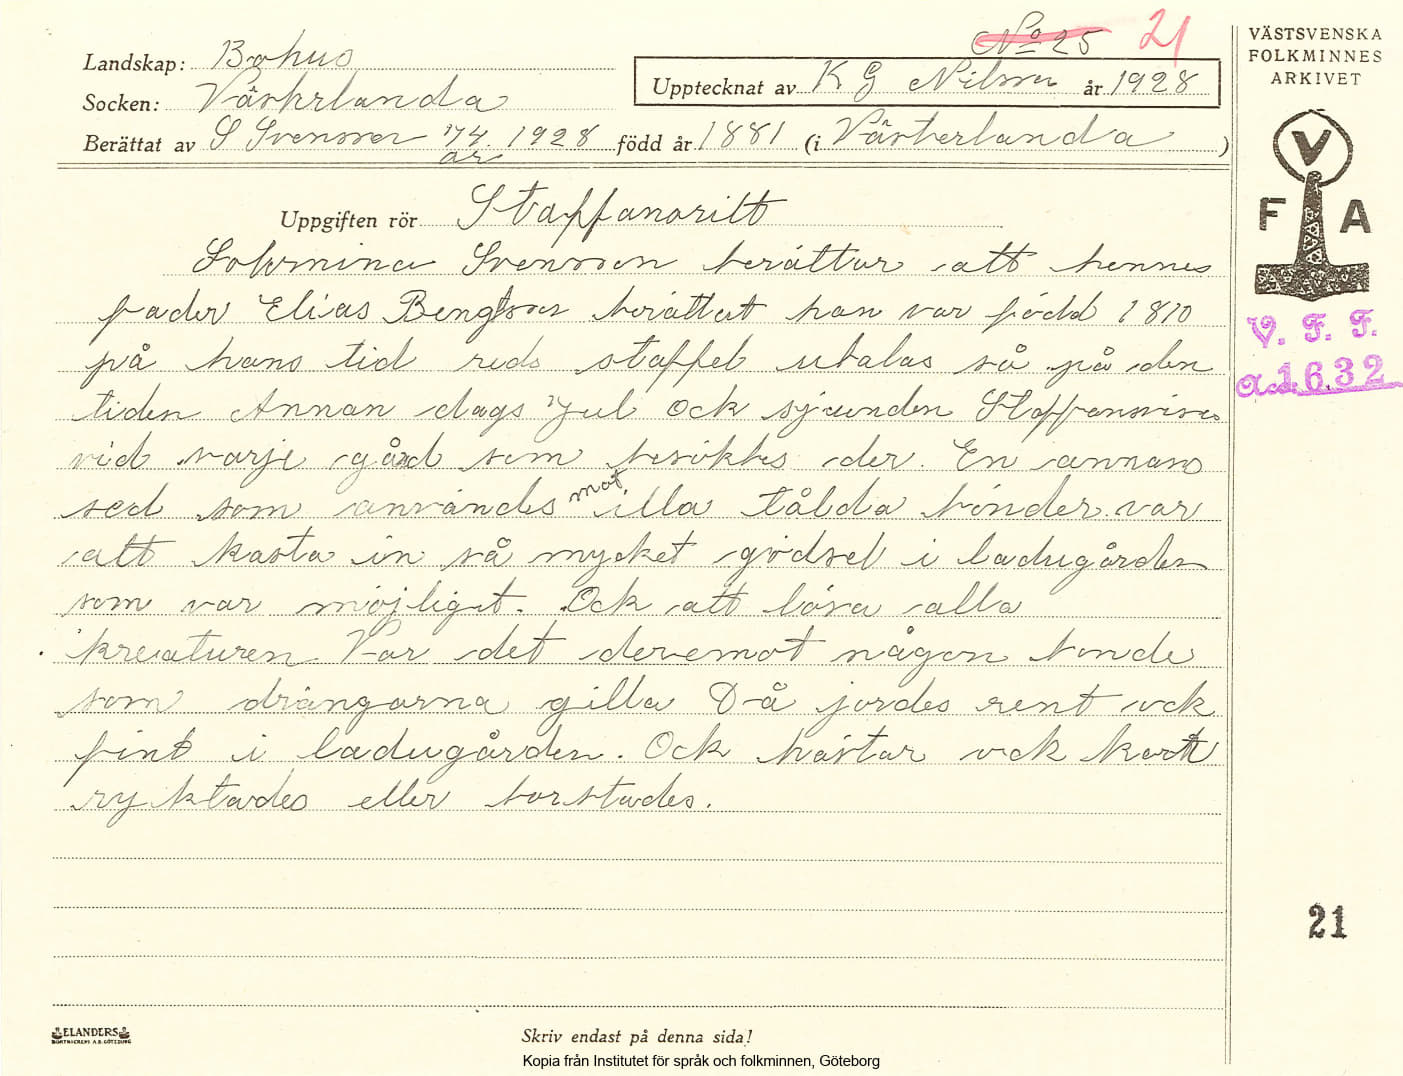 No 25 21
Landskap: Bohus
Socken: Västerlanda
Upptecknat av K G Nilsson år 1928
Berättat av S Svensson 17/4 1928 född år 1881 (i Västerlanda )
år
Uppgiften rör Staffansritt
Svensson berättar att hennes
fader Elias Bengtson berättat han var född 1810
på hans tid reds staffel utalas så på den
tiden Annan dags Jul ock sjunden Staffansvisa
vid varje gård som besöktes der. En annan
sed som användes mot illa tålda bönder var
att kasta in så mycket gödsel i ladugården
som var möjligt. Ock att lösa alla
kreaturen Var det deremot någon bonde
som drängarna gilla Då jordes rent ock
fint i ladugården. Ock hästar ock kort
ryktades eller borstades.
VÄSTSVENSKA
FOLKMINNES
ARKIVET
V
F A
V. F. F.
Acc 1632
21
ELANDERS
BOKTRYCKERI A.B. GÖTEBORG
Skriv endast på denna sida!
Kopia från Institutet för språk och folkminnen, Göteborg